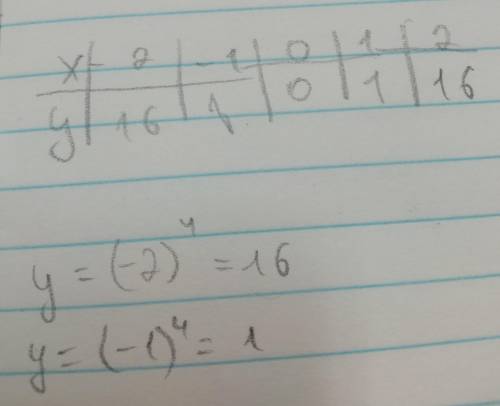 x -2 -1 0 1 2
y 16 1 0 1 16
y = (-2)⁴ = 16
y = (-1)⁴ = 1